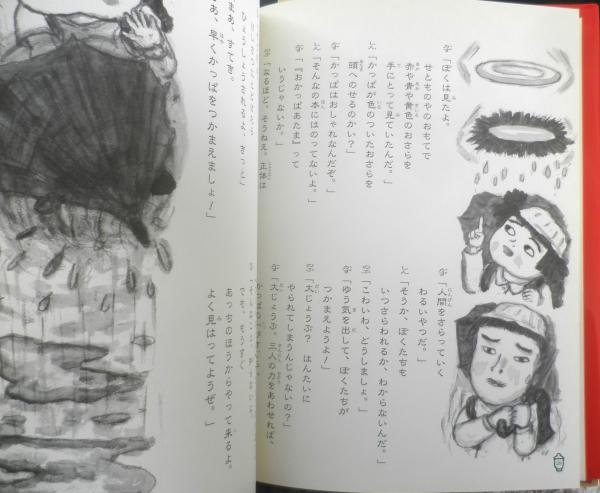 「ぼくは見たよ。
せとものやのおもてで
赤や青や黄色のおさらを
手にとって見ていたんだ。」
「かっぱが色のついたおさらを
頭へのせるのかい?」
「かっぱはおしゃれなんだぞ。」
「そんなの本にはのってないよ。」
「『おかっぱあたま』って
いうじゃないか。」
「なるほど。そうねえ。正体は
「人間をさらっていく
わるいやつだ。」
「そうか、ぼくたちも
いつさらわれるか、わからないんだ。」
「こわいわ、どうしましょ。」
「ゆう気を出して、ぼくたちが
つかまえようよ!」
「大じょうぶ? はんたいに
やられてしまうんじゃないの?」
「大じょうぶ。三人の力をあわせれば、
ひょうしょうされるよ、きっと」
まあ、すてき。
あ、早くかっぱをつかまえましょ!」
でも、もうすぐ
あっちのほうからやって来るよ。
よく見はってようぜ。」